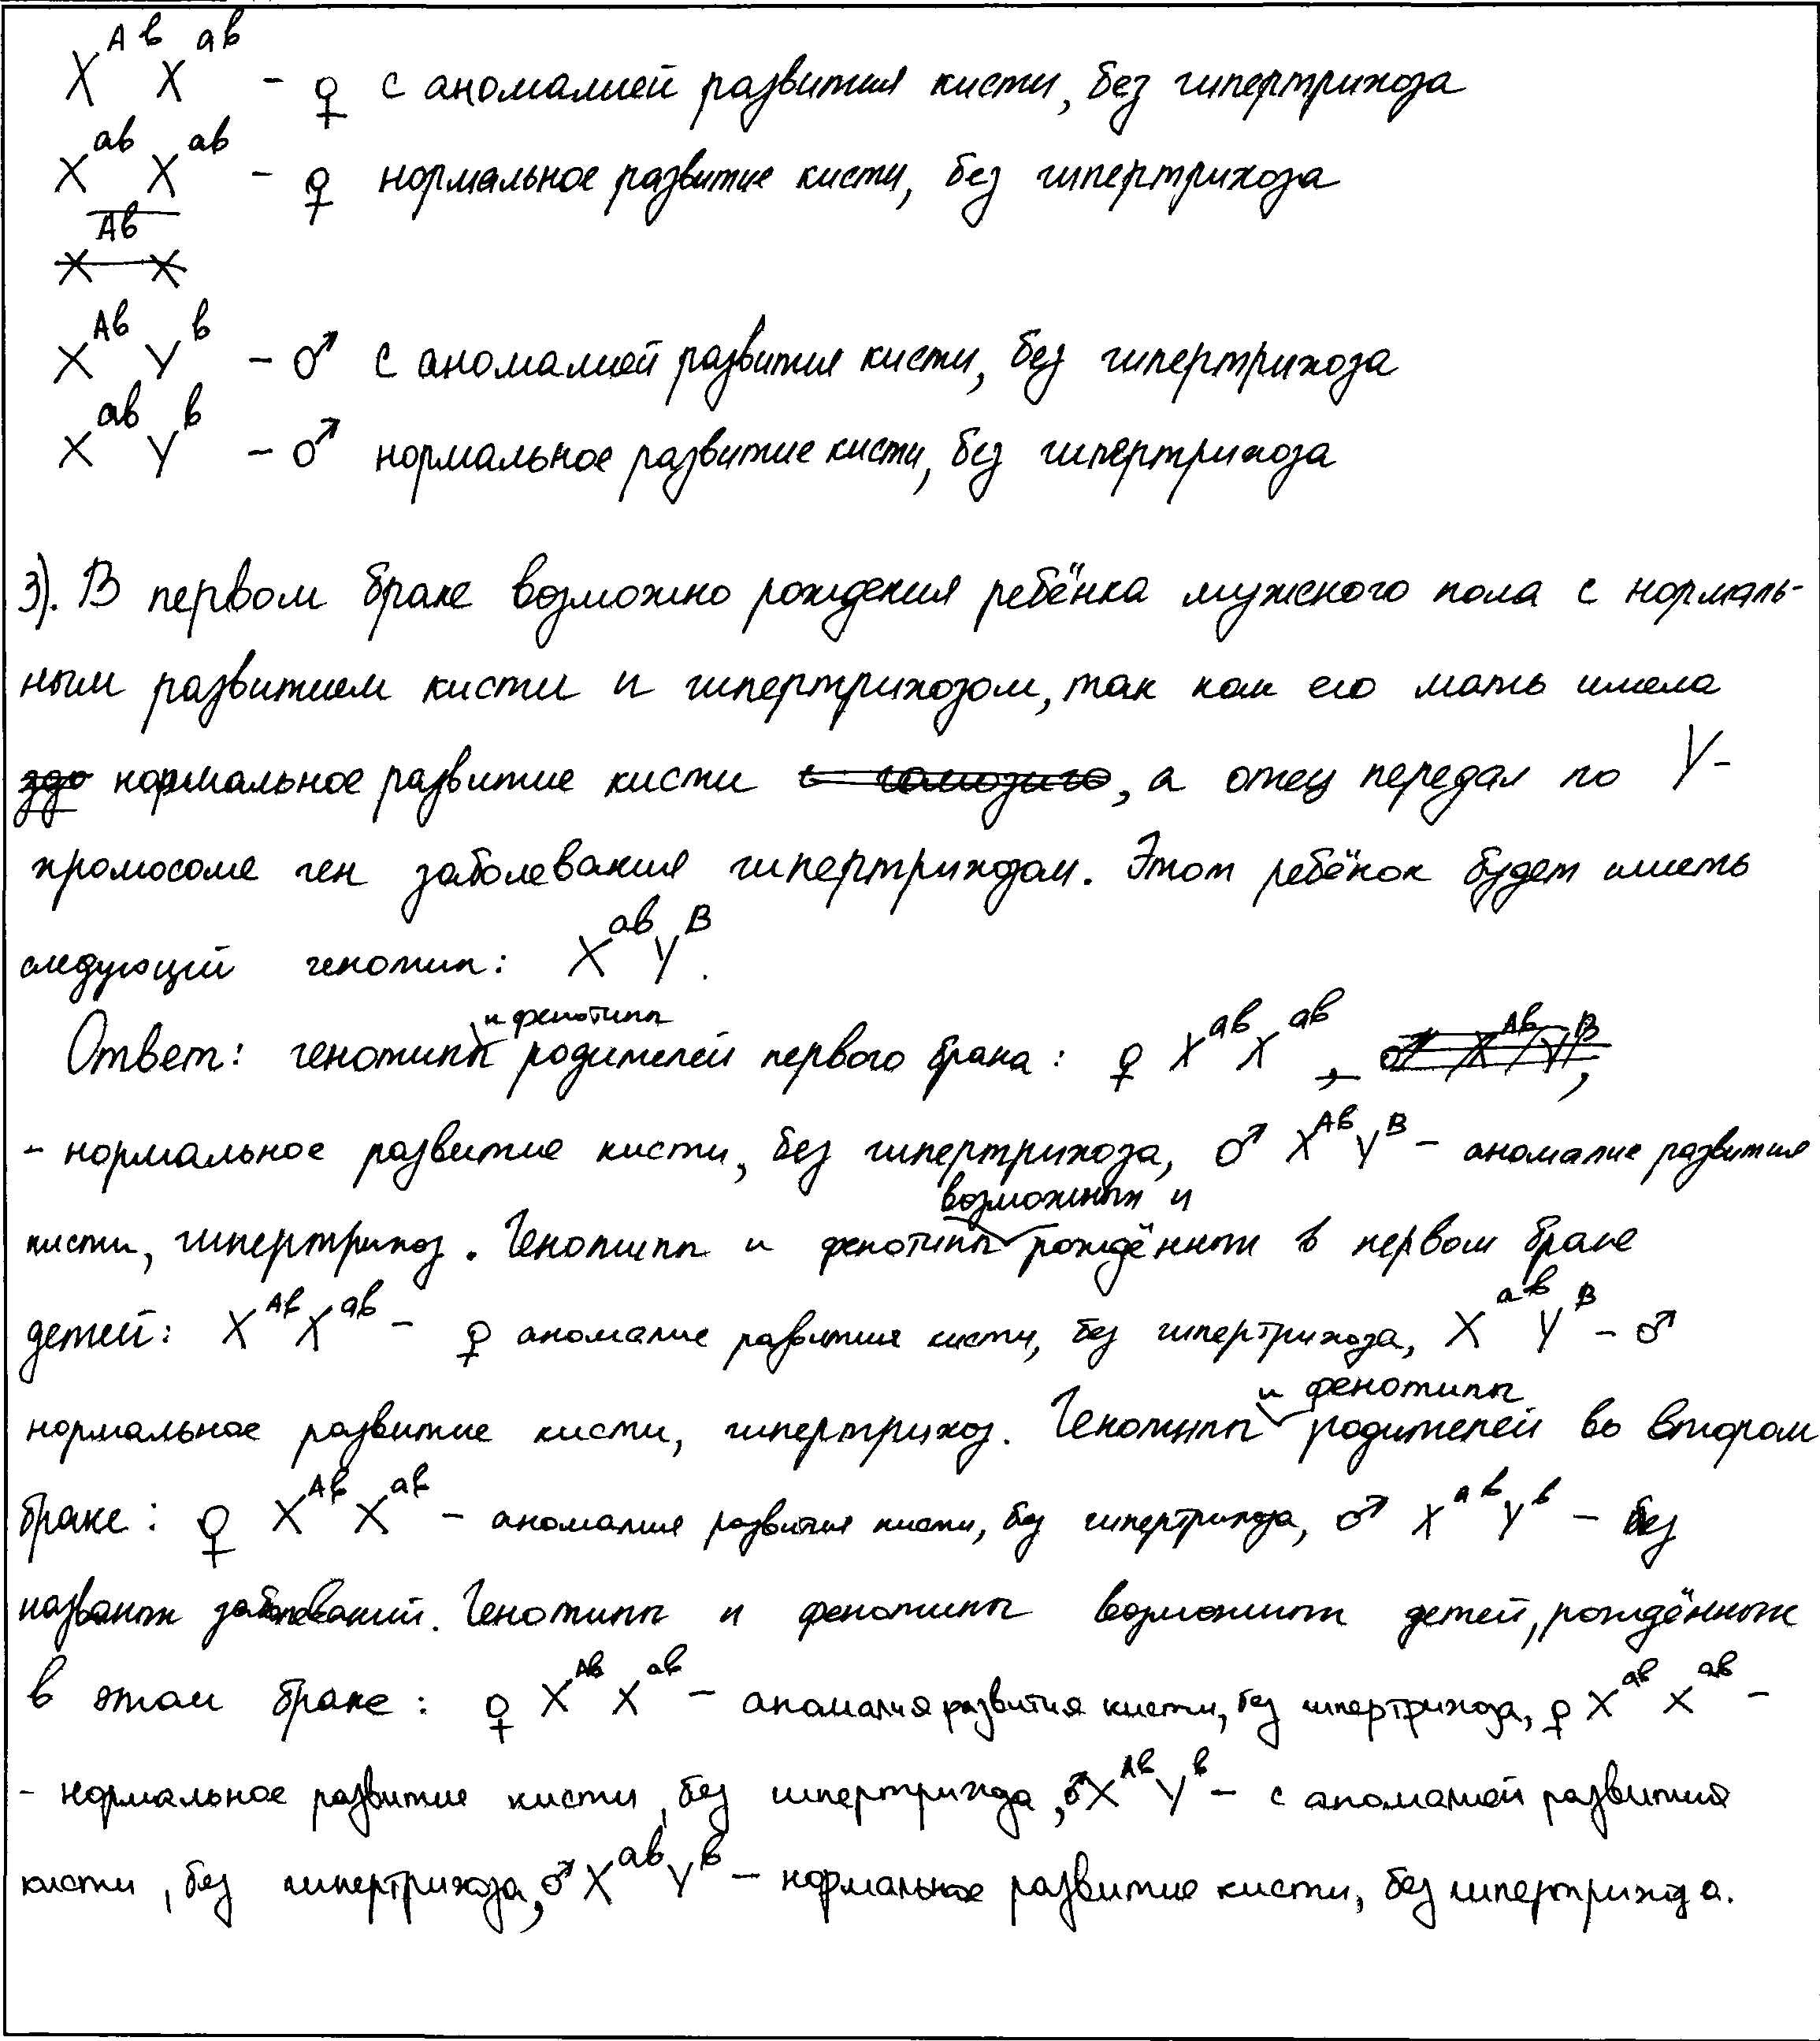 X^Ав X^ав - ♀ с аномалией развития кисти, без гипертрихоза
X^ав X^ав - ♀ нормальное развитие кисти, без гипертрихоза
X^Ав Y^в - ♂ с аномалией развития кисти, без гипертрихоза
X^ав Y^в - ♂ нормальное развитие кисти, без гипертрихоза
3). В первом браке возможно рождения ребёнка мужского пола с нормаль-
ным развитием кисти и гипертрихозом, так как его мать имела
нормальное развитие кисти , а отец передал по Y-
хромосоме ген заболевания гипертрихозом. Этот ребёнок будет иметь
следующий генотип: X^ав Y^В.
Ответ: генотипы и фенотипы родителей первого брака: ♀ X^ав X^ав ,
- нормальное развитие кисти, без гипертрихоза, ♂ X^Ав Y^В - аномалие развития
кисти, гипертрихоз. Генотипы и фенотипы возможных и рождённых в первом браке
детей: X^Ав X^ав - ♀ аномалие развития кисти, без гипертрихоза, X^ав Y^В - ♂
нормальное развитие кисти, гипертрихоз. Генотипы и фенотипы родителей во втором
браке: ♀ X^Ав X^ав - аномалия развития кисти, без гипертрихоза, ♂ X^ав Y^в - без
названых заболеваний. Генотипы и фенотипы возможных детей, рождённых
в этом браке: ♀ X^Ав X^ав - аномалия развития кисти, без гипертрихоза, ♀ X^ав X^ав -
- нормальное развитие кисти, без гипертрихоза, ♂ X^Ав Y^в - с аномалией развития
кисти, без гипертрихоза, ♂ X^ав Y^в - нормальное развитие кисти, без гипертрихоза.